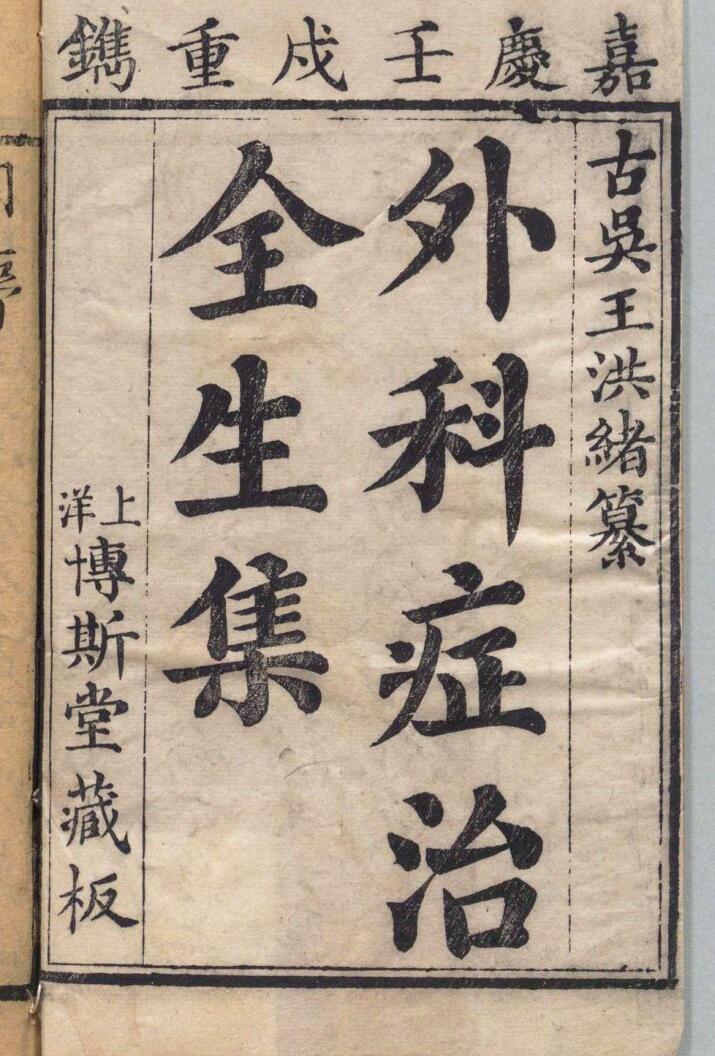 嘉慶壬戍重鐫
古吳王洪緒纂
外科症治
全生集
上洋博斯堂藏板